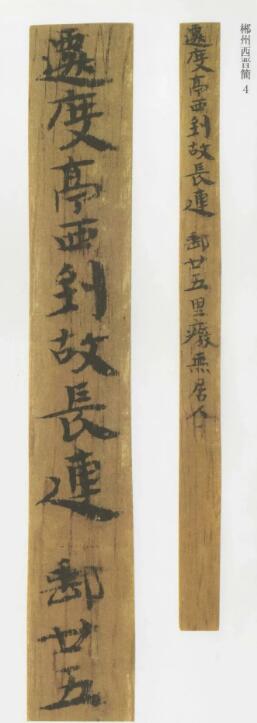 郴州西晋簡 4
遷度亭西到故長連 郵廿五里廢無居人
遷度亭西到故長連 郵廿五